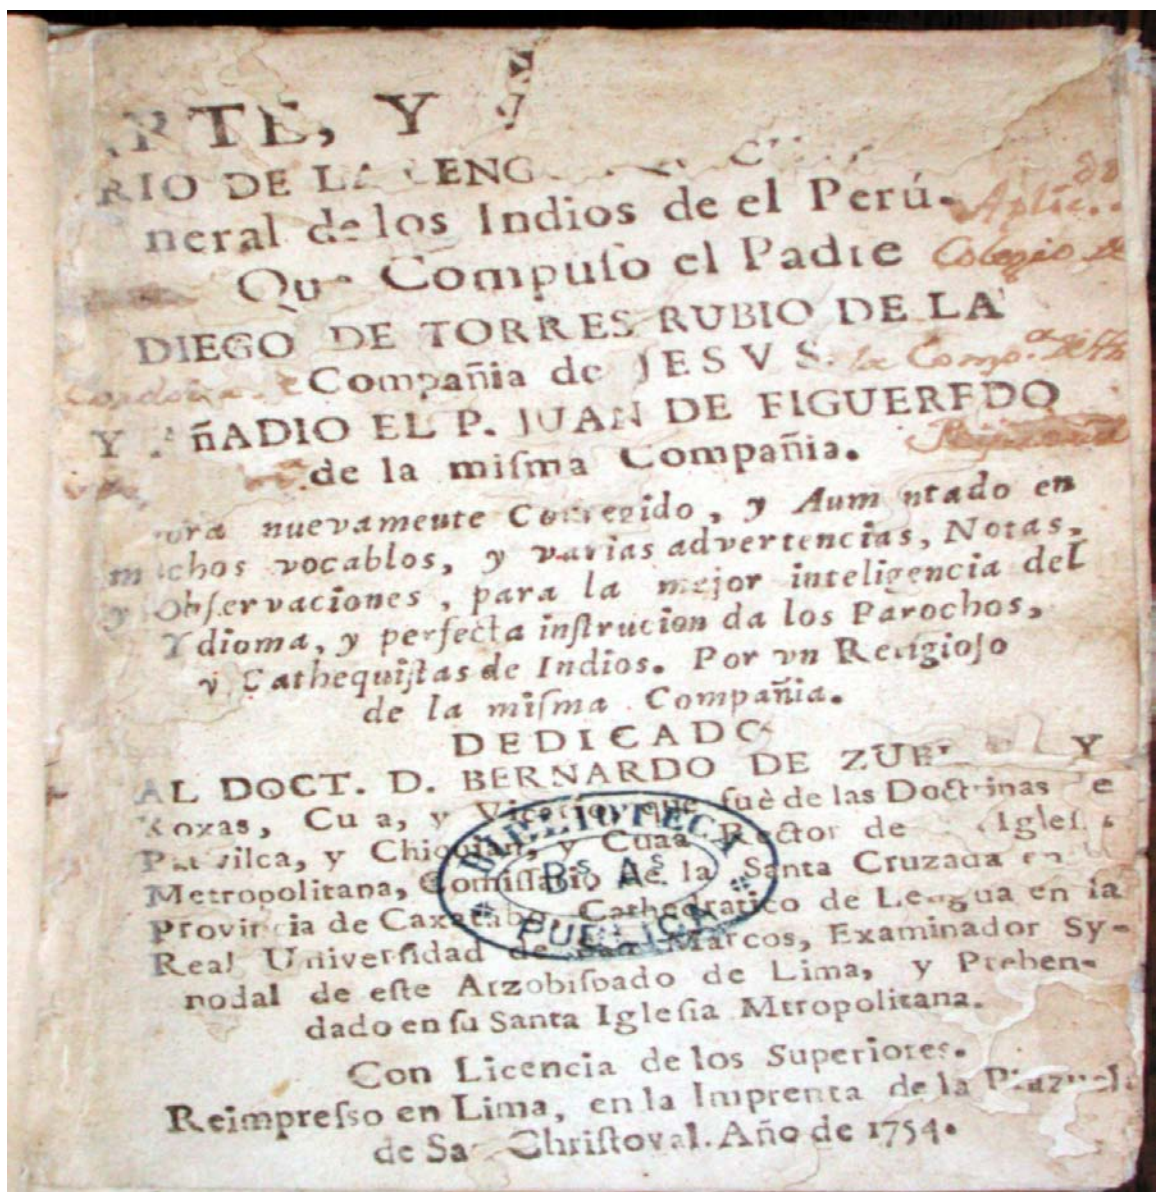 RTE, Y
RIO DE LA LENG
neral de los Indios de el Perú.
Que Compuſo el Padre
DIEGO DE TORRES RUBIO DE LA
Compañia de JESVS.
Y AñADIO EL P. JUAN DE FIGUEREDO
de la miſma Compañia.
ora nuevamente Corregido, y Aumentado en
muchos vocablos, y varias advertencias, Notas,
y Obſervaciones, para la mejor inteligencia del
Ydioma, y perfecta inſtrucion da los Parochos,
y Cathequiſtas de Indios. Por vn Religioſo
de la miſma Compañia.
DEDICADO
AL DOCT. D. BERNARDO DE ZUB Y
Roxas, Cura, y Vicario, que fuè de las Doctrinas e
Pativilca, y Chiquian, y Cuaa Rector de Igleſia
Metropolitana, Comiſſario de la Santa Cruzada en
Provincia de Caxatabo, Cathedratico de Lengua en la
Real Univerſidad de San Marcos, Examinador Sy-
nodal de eſte Arzobiſpado de Lima, y Preben-
dado en ſu Santa Igleſia Mtropolitana.
Con Licencia de los Superiores.
Reimpreſſo en Lima, en la Imprenta de la Plazuela
de San Chriſtoval. Año de 1754.
Aplic.
Colegio de
la Comp.ª de
BIBLIOTECA
Bs. As.
PUBLICA